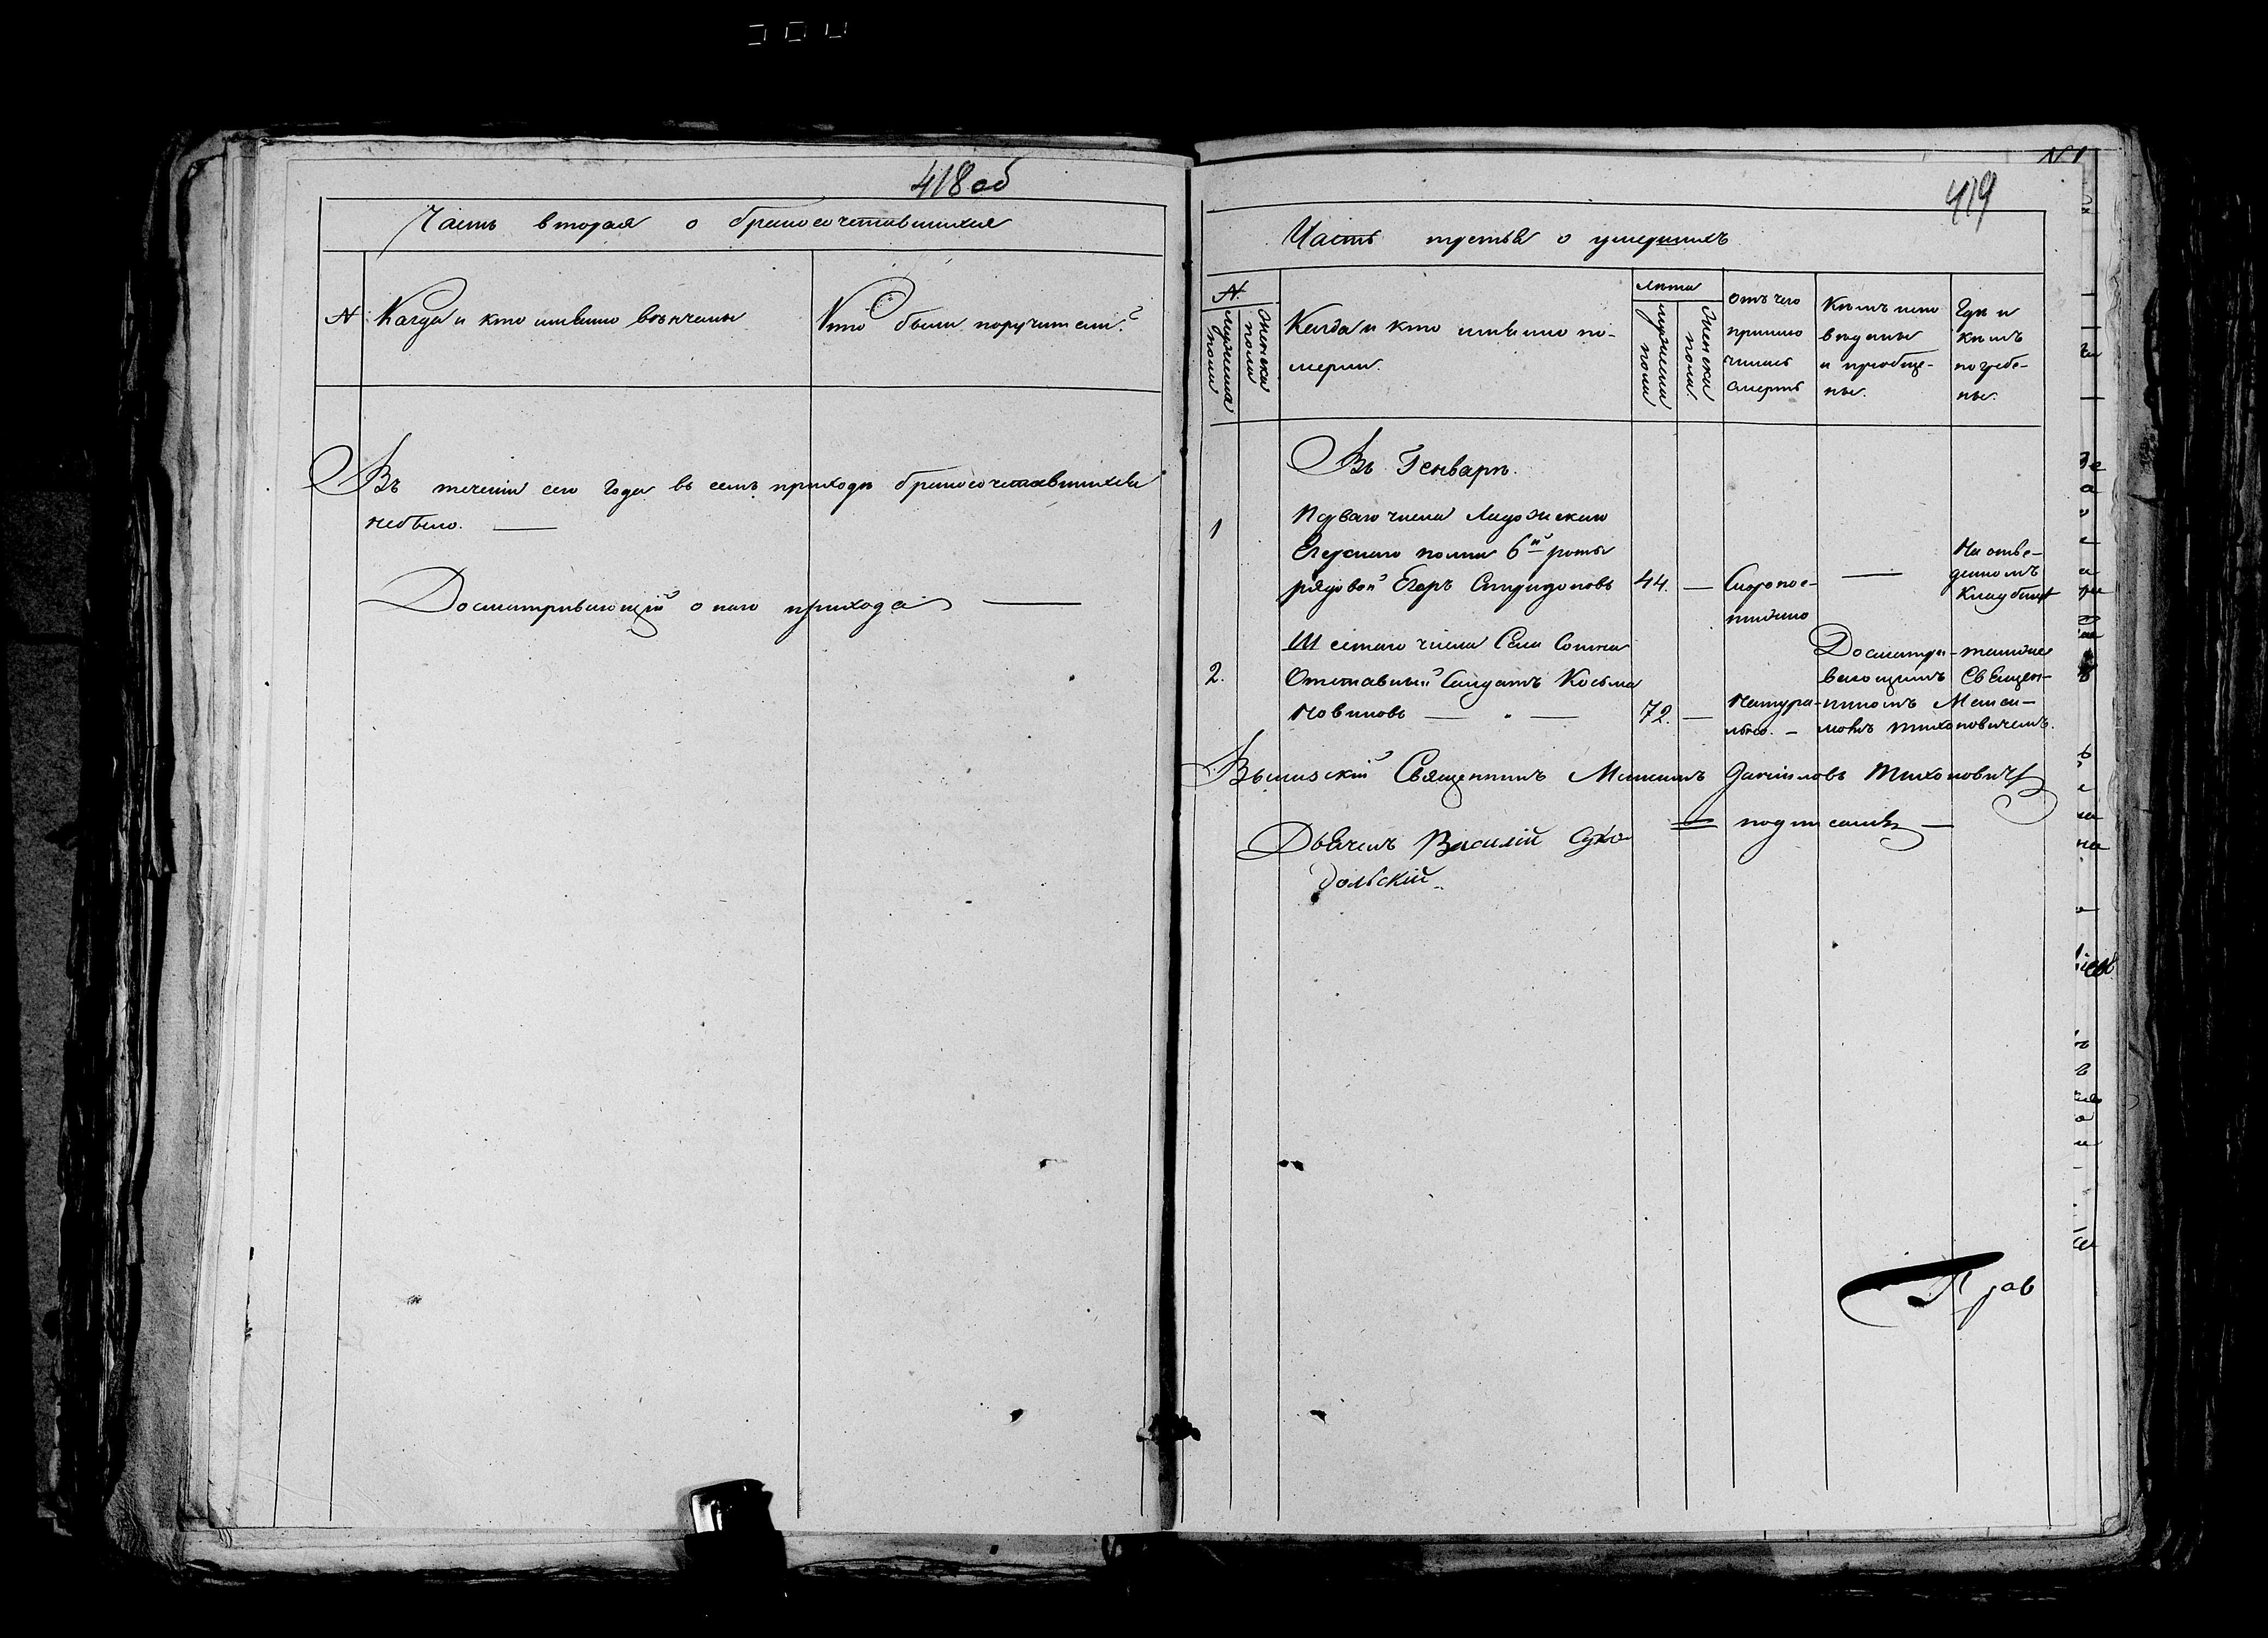 418 об
Часть вторая о бракосочетавшихся
№ Когда и кто имянно венчаны
Кто были поручители?
Въ течении сего Года въ семъ приходѣ бракосочетавшихся
небыло. —
Досматривающій онаго прихода —
419
Часть третья о умершихъ
№
мужеска пола
женска пола
Когда и кто имянно по-
мерли.
лѣта
мужеска пола
женска пола
Отъ чего
приклю
чилась
смерть
Кѣмъ испо
вѣданы
и приобще-
ны.
Гдѣ и
кѣмъ
погребе-
ны.
Въ Генварѣ.
1 Перваго числа Ладожскаго
Егерскаго полка 6й роты
рядовой Егоръ Спиридоновъ 44. — Скоропос-
тижно —
На отве-
денномъ
Кладбищѣ
2. Шестаго числа Села
Отставный Солдатъ Косьма
Новиковъ — 72. — Натура-
льно. —
Досматри-
вающимъ Священ-
никомъ Макси-
момъ Тихоновичемъ.
Священникъ Максимъ Даниловъ Тихоновичъ
подписалъ —
Дьячекъ Василій Сухо
дольскій